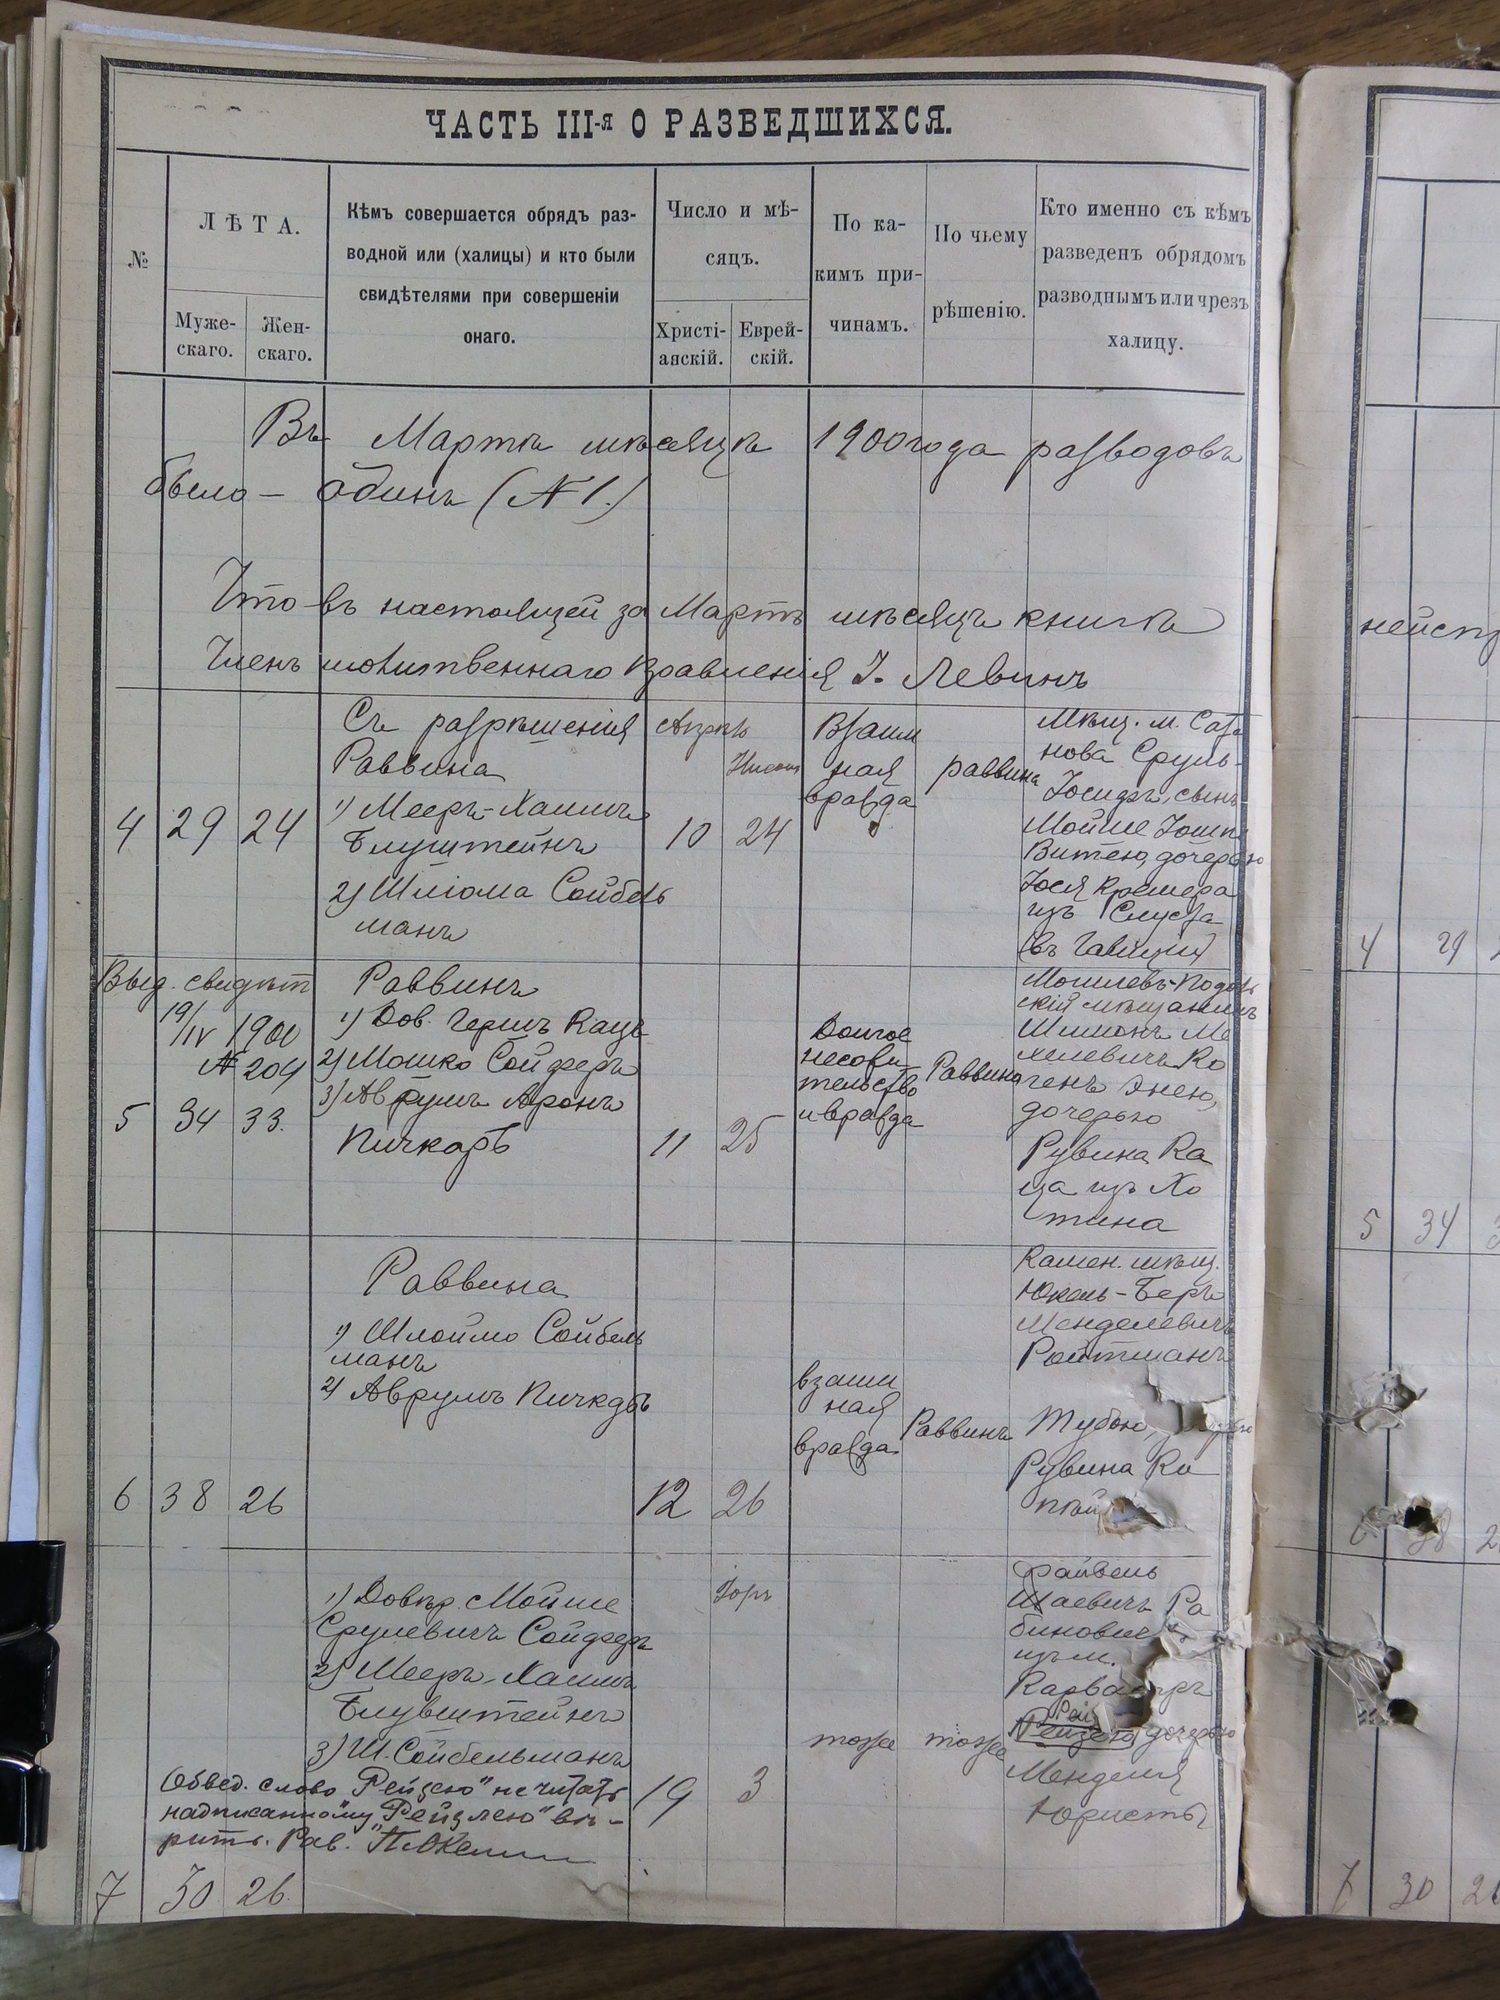 ЧАСТЬ III-я О РАЗВЕДШИХСЯ.
№
ЛѢТА.
Муже-
скаго.
Жен-
скаго.
Кѣмъ совершается обрядъ раз-
водной или (халицы) и кто были
свидѣтелями при совершеніи
онаго.
Число и мѣ-
сяцъ.
Христі-
анскій.
Еврей-
скій.
По ка-
кимъ при-
чинамъ.
По чьему
рѣшенію.
Кто именно съ кѣмъ
разведенъ обрядомъ
разводнымъ или чрезъ
халицу.
Въ Мартѣ мѣсяцѣ 1900 года разводовъ
было - одинъ (№ 1.)
Что въ настоящей за Мартъ мѣсяцъ книгѣ
Членъ молитвеннаго правленія І. Левинъ
4 29 24
Съ разрѣшенія
Раввина
1) Мееръ-Хаимъ
Блувштейнъ
2) Шліома Сойбель
манъ
Апрѣ
10
Нисонъ
24
Взаим
ная
вражда
раввина
Мѣщ. м. Сата
нова Сруль-
Іосифъ, сынъ
Мойше
Витею, дочерью
Іося Кремера
изъ
(въ Галиціи)
Выд. свидѣт
19/IV 1900
№ 204
5 34 33.
Раввинъ
1) Дов. Гершъ Кацъ
2) Мошко Сойферъ
3) Аврумъ Аронъ
Пичкарь
11 25
Долгое
несожи-
тельство
и вражда
Раввина
Могилевъ-Подоль
скій мѣщанинъ
Шимонъ Ме
хелевичъ Ко
генъ Энею,
дочерью
Рувина Ка
ца изъ Хо
тина
6 38 26
Раввина
1) Шлоймо Сойбель
манъ
2) Аврумъ Пичкарь
12 26
взаим
ная
вражда
Раввинъ
Камен. мѣщ.
Юкель-Беръ
Менделевичъ
Ройтманъ
Тубою,
Рувина Ка
7 30 26
1) Довѣр. Мойше
Срулевичъ Сойферъ
2) Мееръ-Хаимъ
Блувштейнъ
3) Ш. Сойбельманъ
Обвед. слово „Рейзею" не читать
надписанному „Рейзлею" вѣ-
рить. Рав.
19
Іоръ
3
тоже
тоже
Файвель
Шаевичъ Ра
биновичъ
изъ м.
Рейзею дочерью
Менделя
Юристъ
4 29
5 34
6 38 2
7 30 26